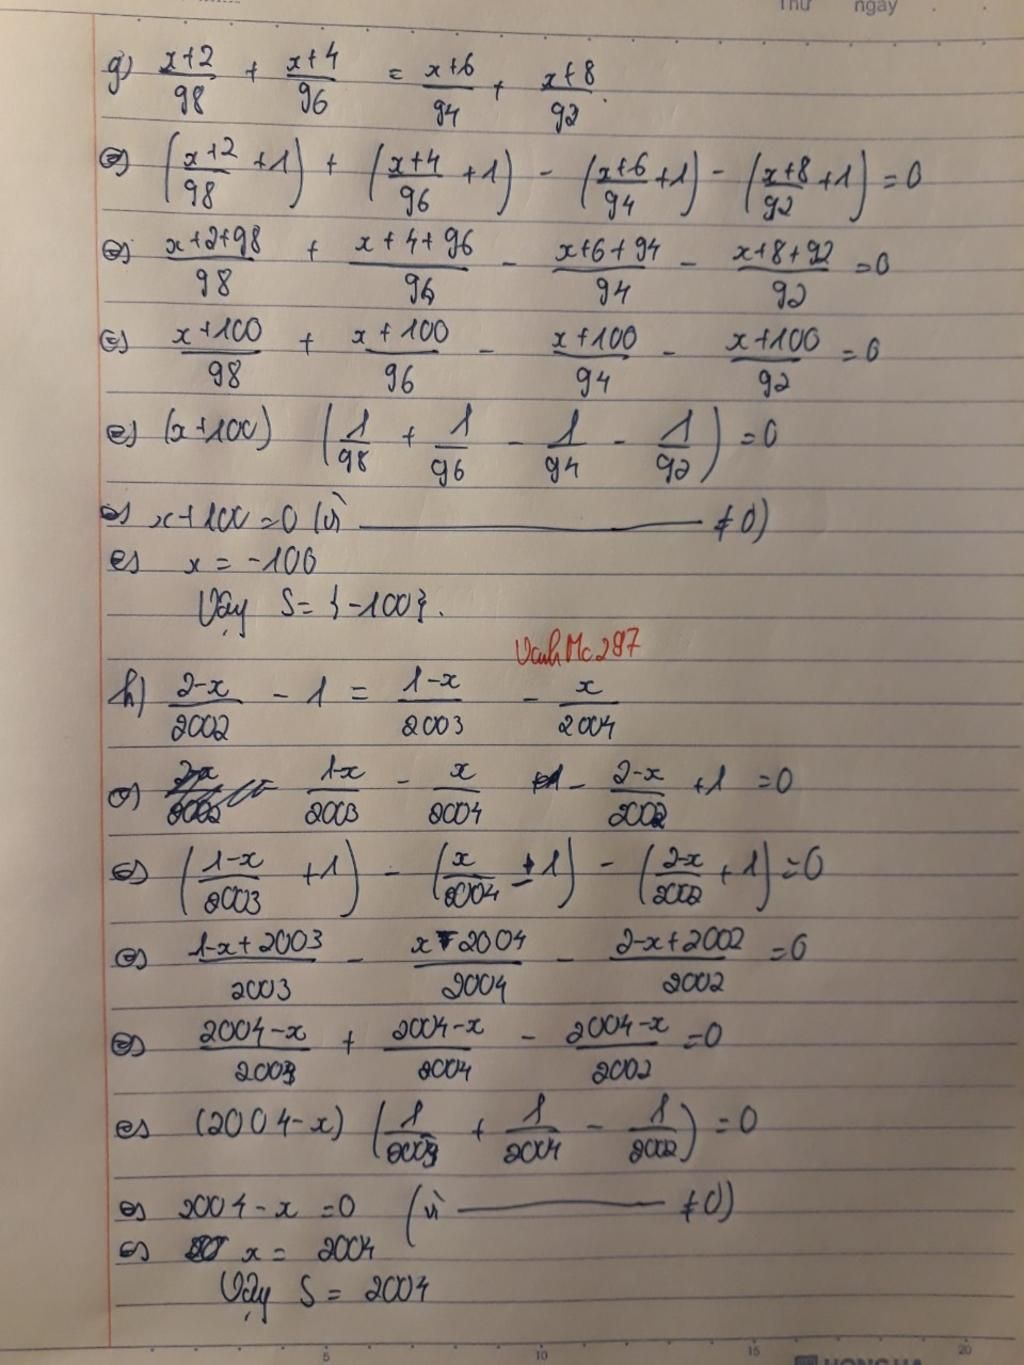 Thứ ngày
g) (x+2)/98 + (x+4)/96 = (x+6)/94 + (x+8)/92.
⇔ ((x+2)/98 + 1) + ((x+4)/96 + 1) - ((x+6)/94 + 1) - ((x+8)/92 + 1) = 0
⇔ (x+2+98)/98 + (x+4+96)/96 - (x+6+94)/94 - (x+8+92)/92 = 0
⇔ (x+100)/98 + (x+100)/96 - (x+100)/94 - (x+100)/92 = 0
⇔ (x+100) (1/98 + 1/96 - 1/94 - 1/92) = 0
⇔ x+100 = 0 (vì ——— ≠ 0)
⇔ x = -100
Vậy S = {-100}.
VanhMc297
h) (2-x)/2002 - 1 = (1-x)/2003 - x/2004
⇔ (1-x)/2003 - x/2004 - (2-x)/2002 + 1 = 0
⇔ ((1-x)/2003 + 1) - (x/2004 - 1) - ((2-x)/2002 + 1) = 0
⇔ (1-x+2003)/2003 - (x-2004)/2004 - (2-x+2002)/2002 = 0
⇔ (2004-x)/2003 + (2004-x)/2004 - (2004-x)/2002 = 0
⇔ (2004-x) (1/2003 + 1/2004 - 1/2002) = 0
⇔ 2004-x = 0 (vì ——— ≠ 0)
⇔ x = 2004
Vậy S = 2004
5 10 15 20